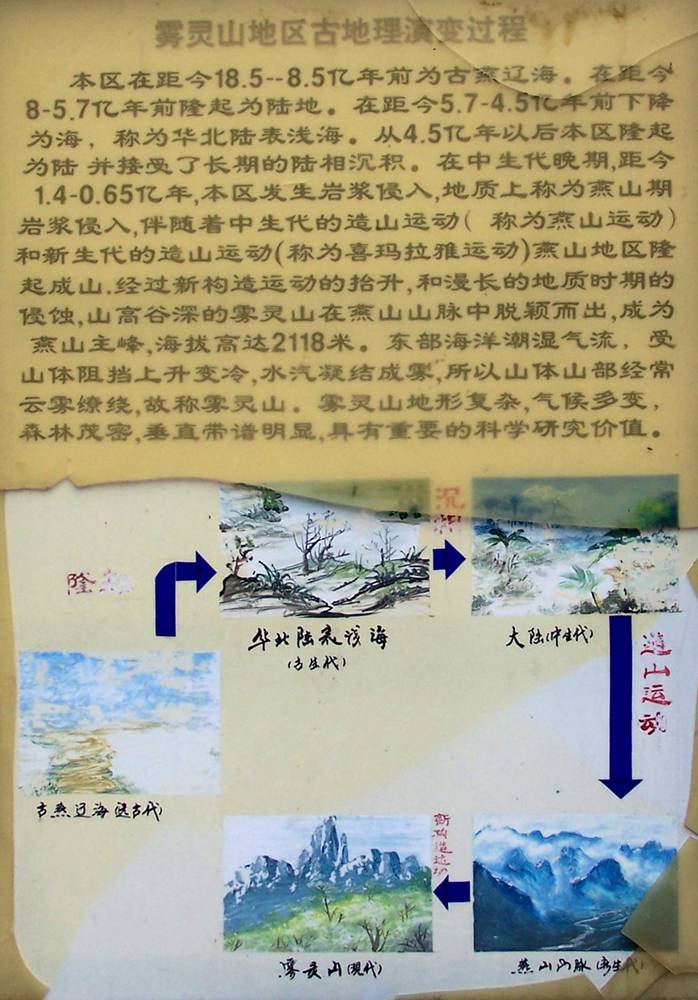 雾灵山地区古地理演变过程
本区在距今18.5--8.5亿年前为古燕辽海。在距今
8-5.7亿年前隆起为陆地。在距今5.7-4.5亿年前下降
为海，称为华北陆表浅海。从4.5亿年以后本区隆起
为陆 并接受了长期的陆相沉积。在中生代晚期,距今
1.4-0.65亿年,本区发生岩浆侵入,地质上称为燕山期
岩浆侵入,伴随着中生代的造山运动( 称为燕山运动)
和新生代的造山运动(称为喜玛拉雅运动)燕山地区隆
起成山.经过新构造运动的抬升,和漫长的地质时期的
侵蚀,山高谷深的雾灵山在燕山山脉中脱颖而出,成为
燕山主峰,海拔高达2118米。东部海洋潮湿气流，受
山体阻挡上升变冷,水汽凝结成雾,所以山体山部经常
云雾缭绕,故称雾灵山。雾灵山地形复杂,气候多变,
森林茂密,垂直带谱明显,具有重要的科学研究价值。
沉
隆
华北陆表浅海
(古生代)
大陆(中生代)
造山运动
古燕辽海远古代
新构造运动
雾灵山(现代)
燕山山脉(新生代)